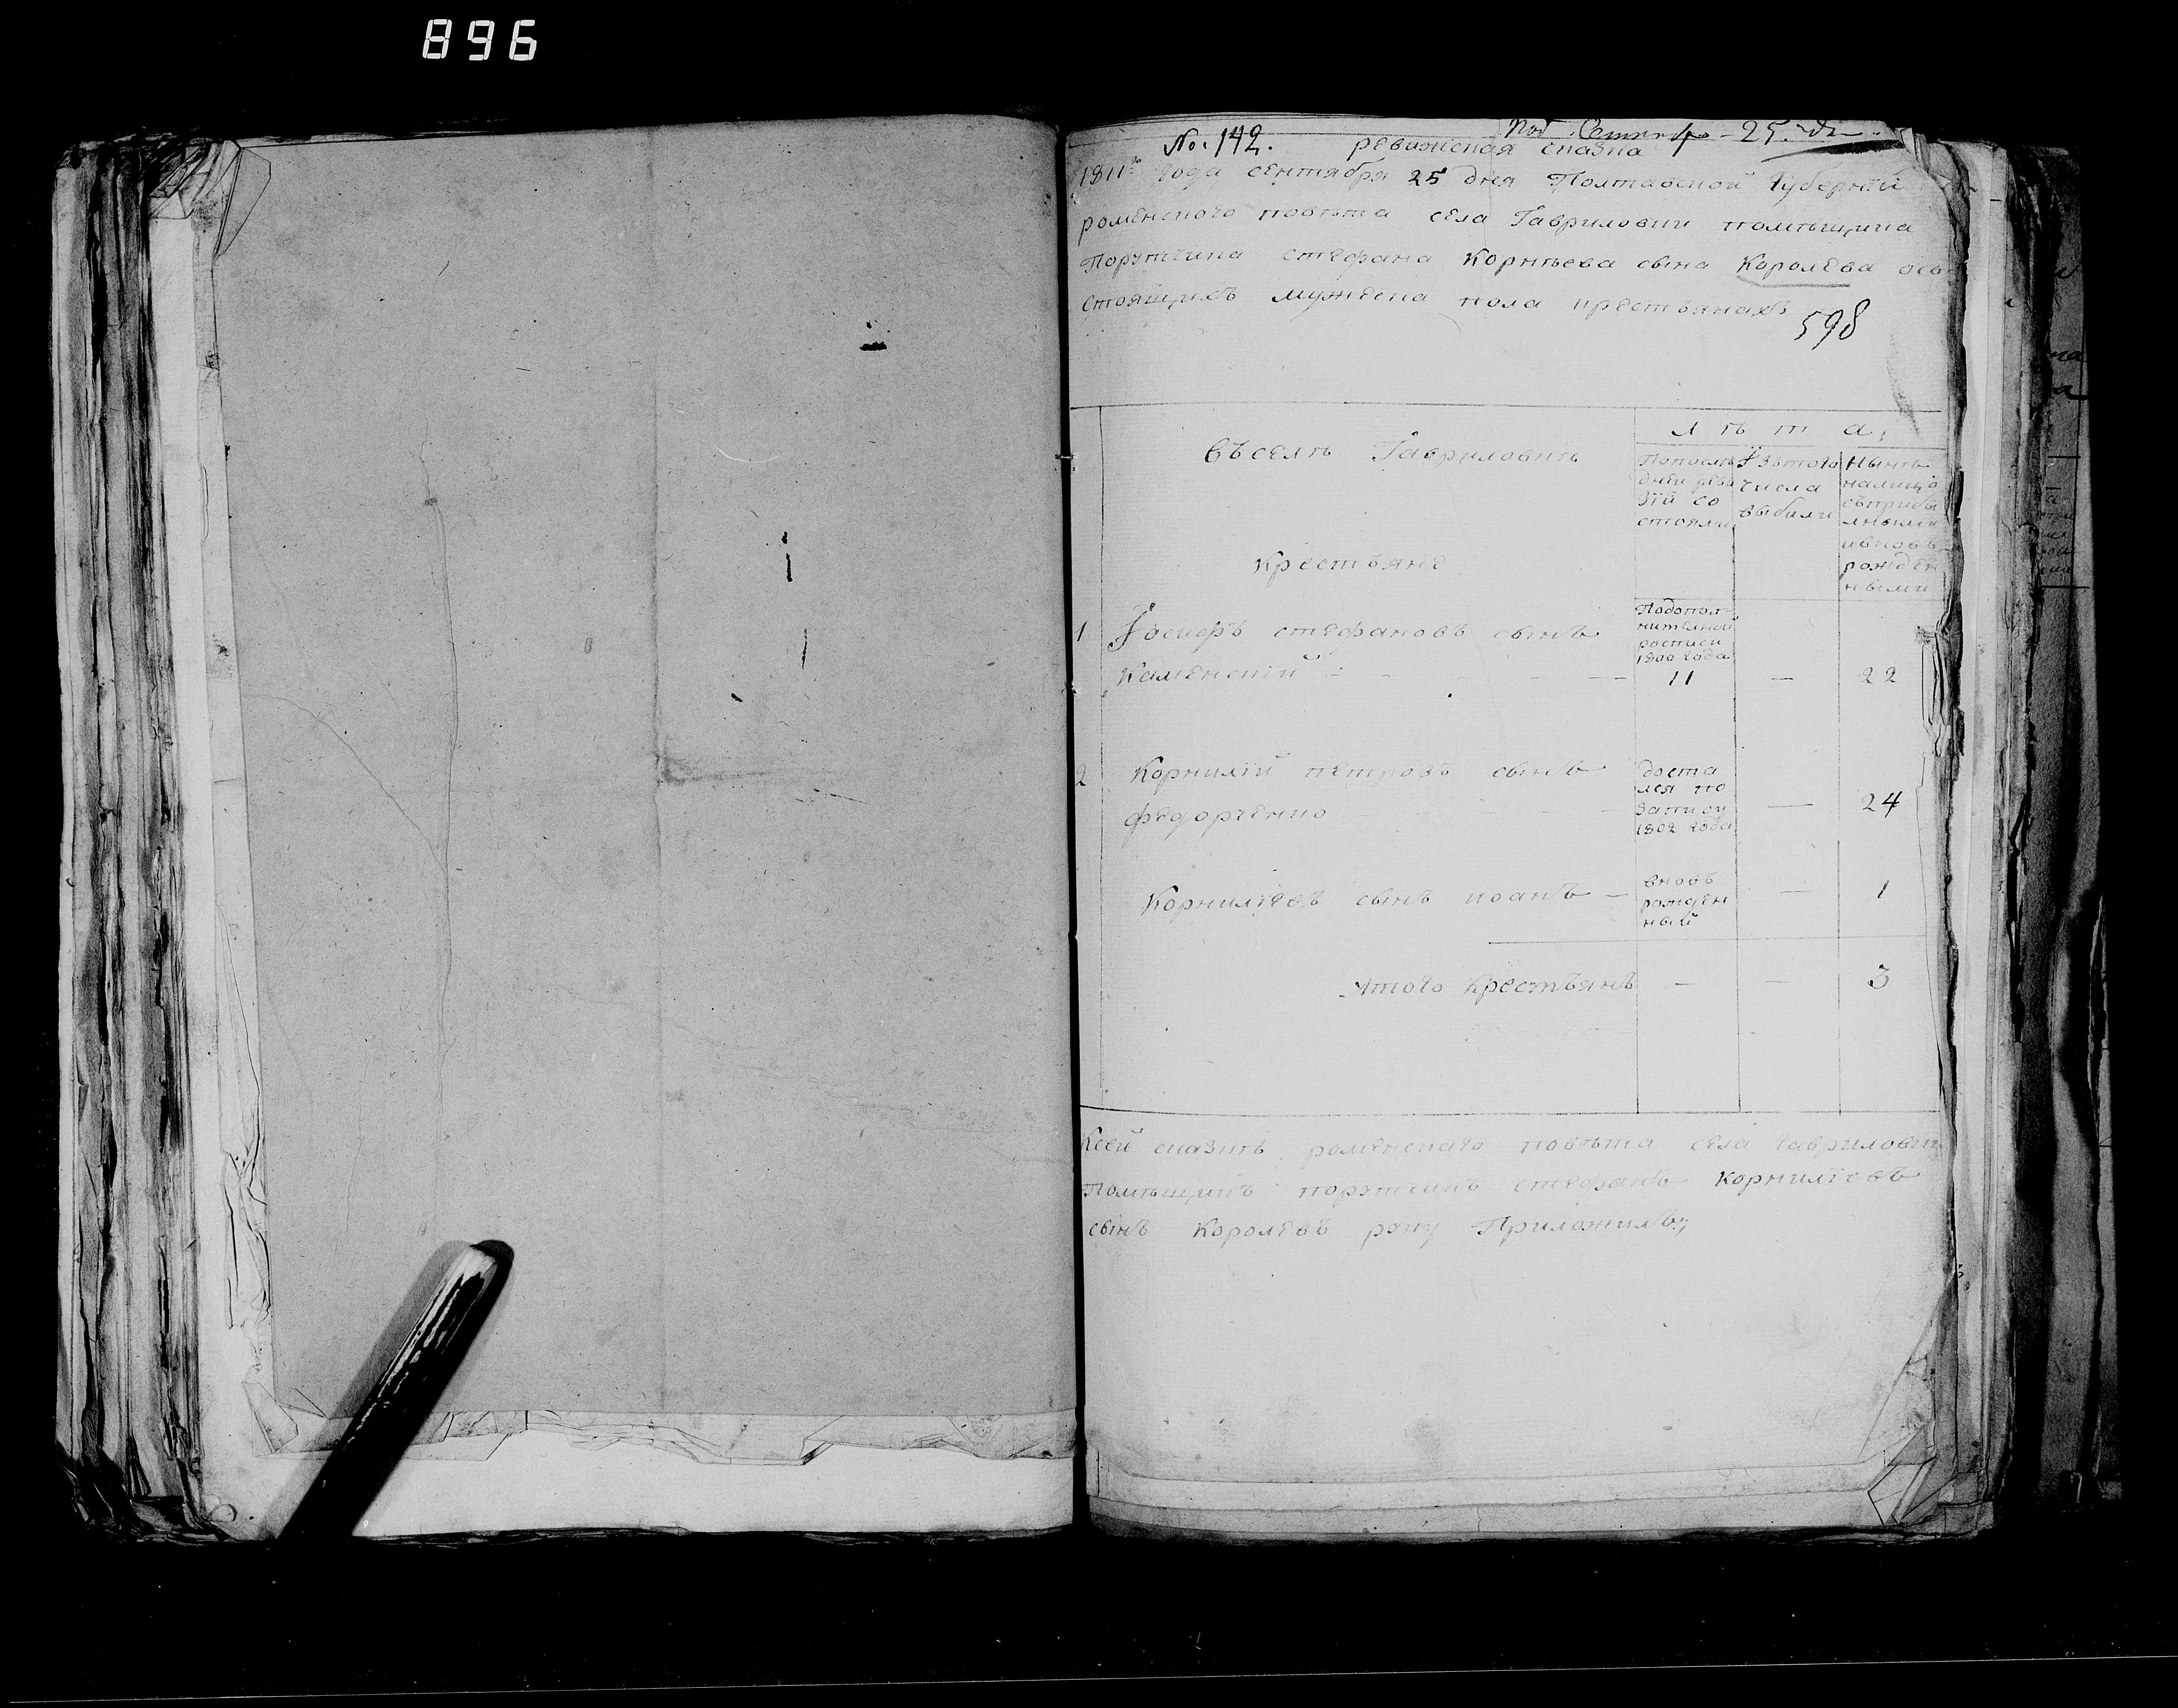 896
Под. Сентября 25. дня
No. 142. ревижская сказка
1811го года сентября 25 дня Полтавской Губернїи
роменского повѣта села Гавриловки помѣщика
Порутчика стефана Корнѣева сына Королева осо
стоящихъ мужеска пола крестьянахъ
598
Л ѣ т а,
въселѣ Гавриловкѣ
Крестьяне
Попослѣ
дней реви
зїи со
стояли
Iзътого
числа
выбили
Нынѣ
налицо
съприбы
лными
ивновь
рожден
ными
1 Iосифъ стефановъ сынъ
Каменскїй - - - - -
Подопол-
нителной
росписи
1800 года
11 — 22
2 Корнилїй петровъ сынъ
федорченко
доста
лся по
записи
1802 года
— 24
Корнилїевъ сынъ иоанъ —
вновь
рожден
ный
— 1
Итого Крестьянъ — — 3
Ксей сказкѣ роменскаго повѣта села гавриловки
Помѣщикъ порутчикъ стефанъ Корнилїевъ
сынъ Королевъ руку Приложилъ;